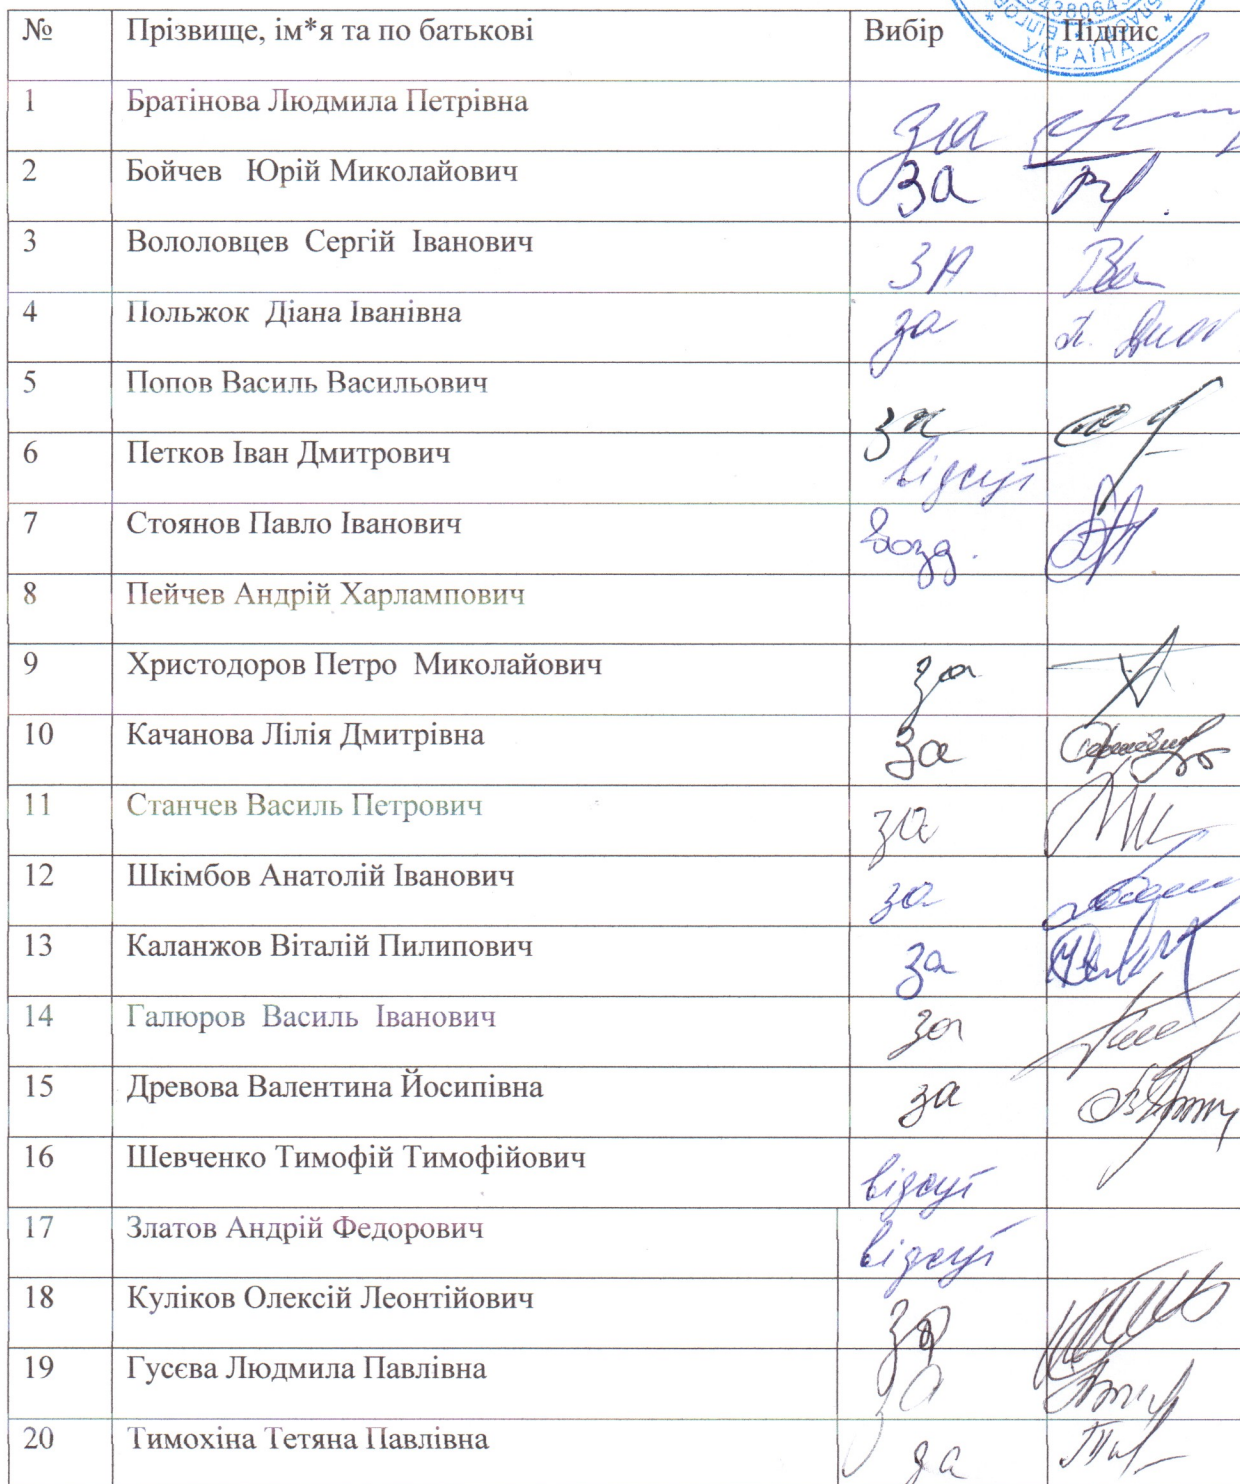 № Прізвище, ім*я та по батькові Вибір Підпис
УКРАЇНА
1 Братінова Людмила Петрівна за
2 Бойчев Юрій Миколайович за
3 Вололовцев Сергій Іванович ЗА
4 Польжок Діана Іванівна за
5 Попов Василь Васильович за
6 Петков Іван Дмитрович відсут
7 Стоянов Павло Іванович возд.
8 Пейчев Андрій Харлампович
9 Христодоров Петро Миколайович за
10 Качанова Лілія Дмитрівна за
11 Станчев Василь Петрович за
12 Шкімбов Анатолій Іванович за
13 Каланжов Віталій Пилипович за
14 Галюров Василь Іванович за
15 Древова Валентина Йосипівна за
16 Шевченко Тимофій Тимофійович відсут
17 Златов Андрій Федорович відсут
18 Куліков Олексій Леонтійович за
19 Гусєва Людмила Павлівна за
20 Тимохіна Тетяна Павлівна за